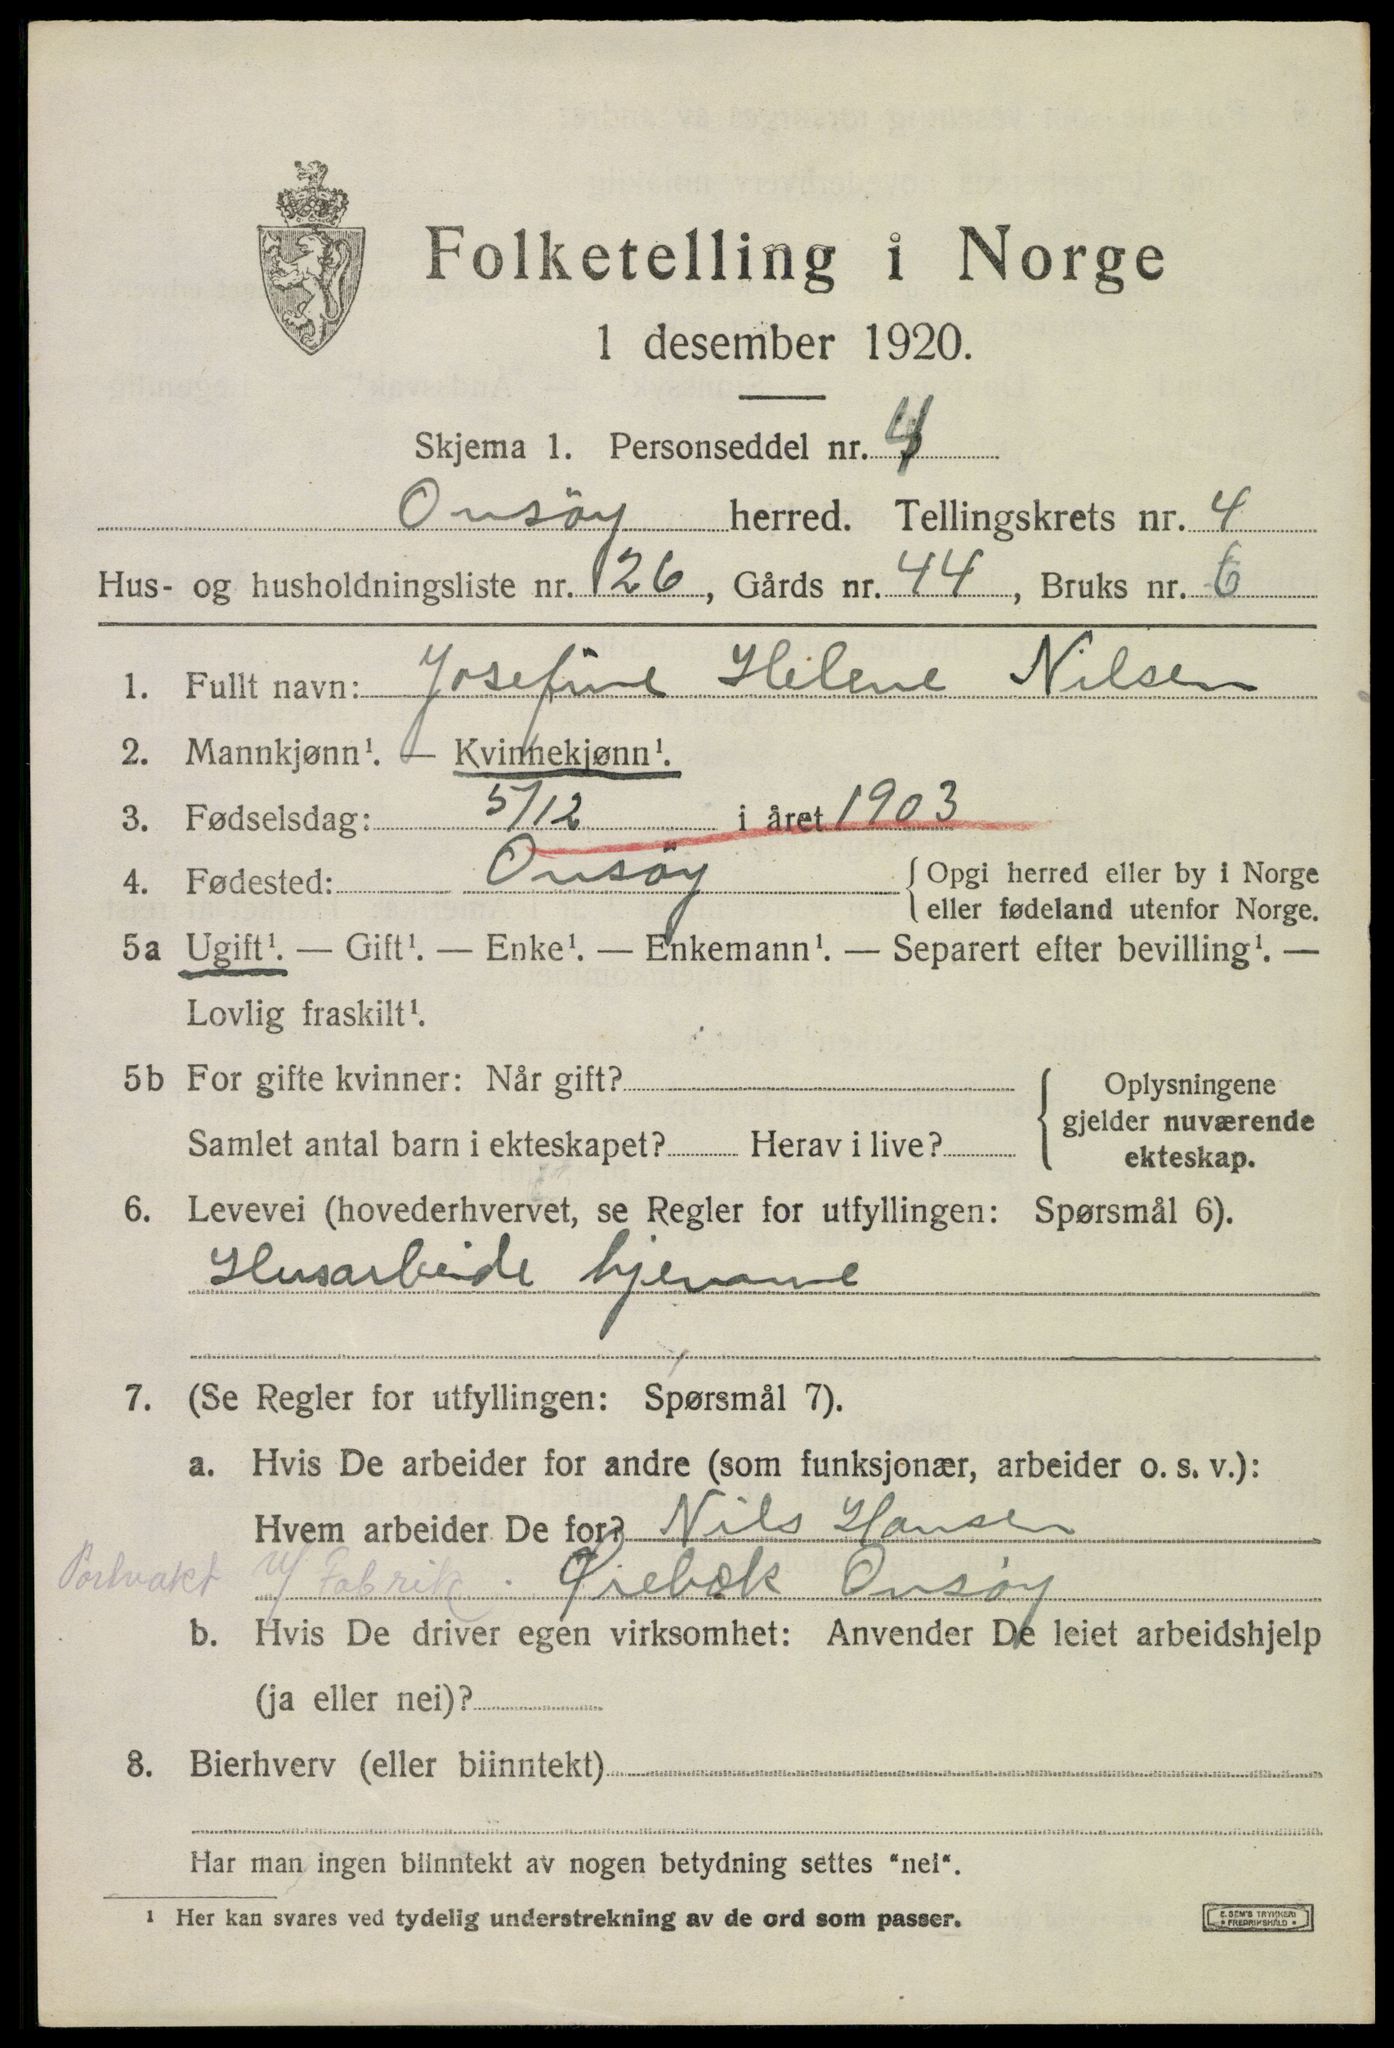 Folketelling i Norge
1 desember 1920.
Skjema 1. Personseddel nr. 4
Onsöy herred. Tellingskrets nr. 4
Hus- og husholdningsliste nr. 126, Gårds nr. 44, Bruks nr. 6
1. Fullt navn: Josefine Helene Nilsen
2. Mannkjønn¹. — Kvinnekjønn¹.
3. Fødselsdag: 5/12 i året 1903
4. Fødested: Onsöy { Opgi herred eller by i Norge
eller fødeland utenfor Norge.
5a Ugift¹. — Gift¹. — Enke¹. — Enkemann¹. — Separert efter bevilling¹. —
Lovlig fraskilt¹.
5b For gifte kvinner: Når gift?
Samlet antal barn i ekteskapet? Herav i live?
{ Oplysningene
gjelder nuværende
ekteskap.
6. Levevei (hovederhvervet, se Regler for utfyllingen: Spørsmål 6).
Husarbeide hjemme
7. (Se Regler for utfyllingen: Spørsmål 7).
a. Hvis De arbeider for andre (som funksjonær, arbeider o. s. v.):
Hvem arbeider De for? Nils Hansen
Portvakt v/ Fabrik. Ørebæk Onsöy
b. Hvis De driver egen virksomhet: Anvender De leiet arbeidshjelp
(ja eller nei)?
8. Bierhverv (eller biinntekt)
Har man ingen biinntekt av nogen betydning settes "nei".
¹ Her kan svares ved tydelig understrekning av de ord som passer.
E. SEM'S TRYKKERI
• FREDRIKSHALD •